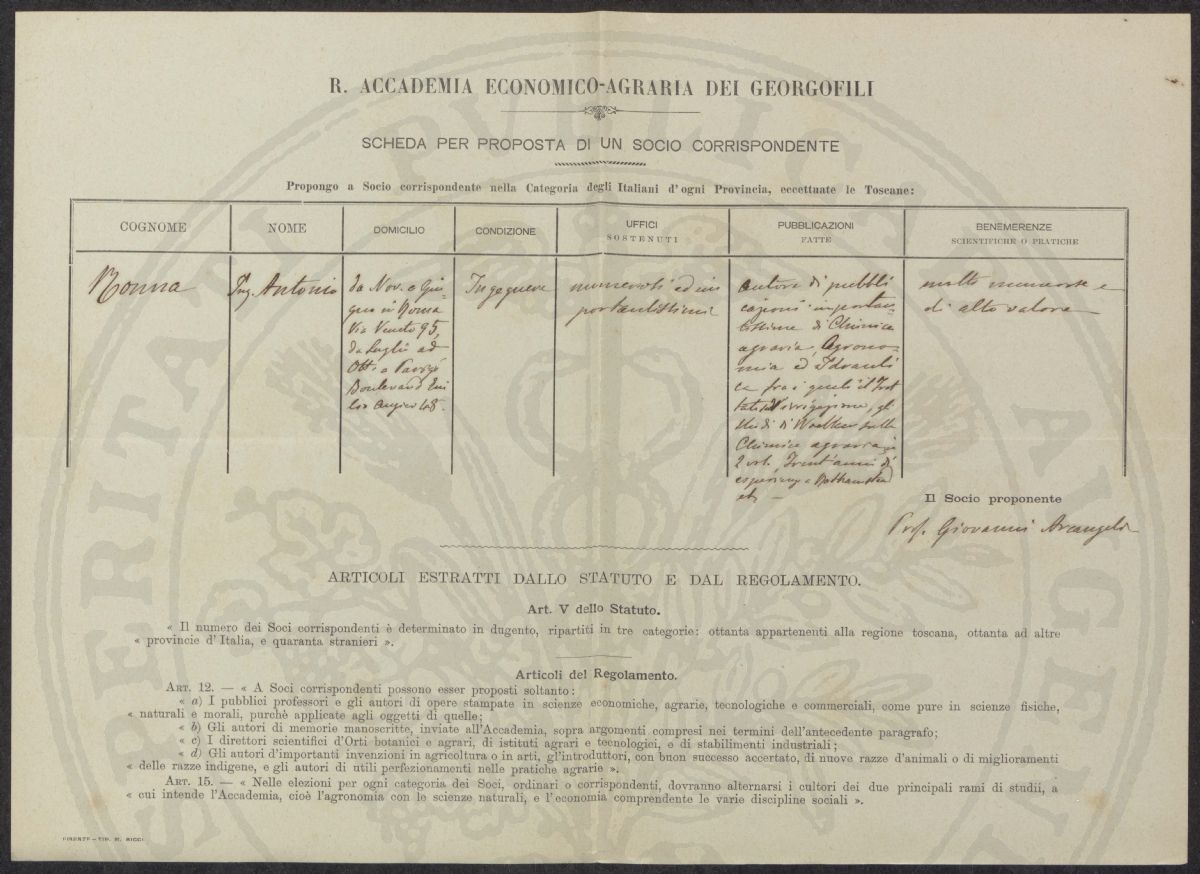 R. ACCADEMIA ECONOMICO-AGRARIA DEI GEORGOFILI
SCHEDA PER PROPOSTA DI UN SOCIO CORRISPONDENTE
Propongo a Socio corrispondente nella Categoria degli Italiani d'ogni Provincia, eccettuate le Toscane:
COGNOME
NOME
DOMICILIO
CONDIZIONE
UFFICI
SOSTENUTI
PUBBLICAZIONI
FATTE
BENEMERENZE
SCIENTIFICHE O PRATICHE
Ronna
Ing. Antonio
da Nov. a Giu-
gno in Roma
Via Veneto 95,
da Luglio ad
Ott. a Parigi
Boulevard Emi
lio Augier 48.
Ingegnere
numerosi ed im
portantissimi
autore di pubbli
cazioni importan-
tissime di Chimica
agraria, Agrono-
mia ed Idrauli
ca fra i quali il Trat
tato d'irrigazione, gli
studi di sulla
Chimica agraria in
2 vol., Trent'anni di
a Rothamsted
etc —
molto numerose e
di alto valore
Il Socio proponente
Prof. Giovanni Arcangeli
ARTICOLI ESTRATTI DALLO STATUTO E DAL REGOLAMENTO.
Art. V dello Statuto.
« Il numero dei Soci corrispondenti è determinato in dugento, ripartiti in tre categorie: ottanta appartenenti alla regione toscana, ottanta ad altre
« provincie d'Italia, e quaranta stranieri ».
Articoli del Regolamento.
ART. 12. — « A Soci corrispondenti possono esser proposti soltanto:
« a) I pubblici professori e gli autori di opere stampate in scienze economiche, agrarie, tecnologiche e commerciali, come pure in scienze fisiche,
« naturali e morali, purchè applicate agli oggetti di quelle;
« b) Gli autori di memorie manoscritte, inviate all'Accademia, sopra argomenti compresi nei termini dell'antecedente paragrafo;
« c) I direttori scientifici d'Orti botanici e agrari, di istituti agrari e tecnologici, e di stabilimenti industriali;
« d) Gli autori d'importanti invenzioni in agricoltura o in arti, gl'introduttori, con buon successo accertato, di nuove razze d'animali o di miglioramenti
« delle razze indigene, e gli autori di utili perfezionamenti nelle pratiche agrarie ».
ART. 15. — « Nelle elezioni per ogni categoria dei Soci, ordinari o corrispondenti, dovranno alternarsi i cultori dei due principali rami di studii, a
« cui intende l'Accademia, cioè l'agronomia con le scienze naturali, e l'economia comprendente le varie discipline sociali ».
FIRENZE — TIP. M. RICCI